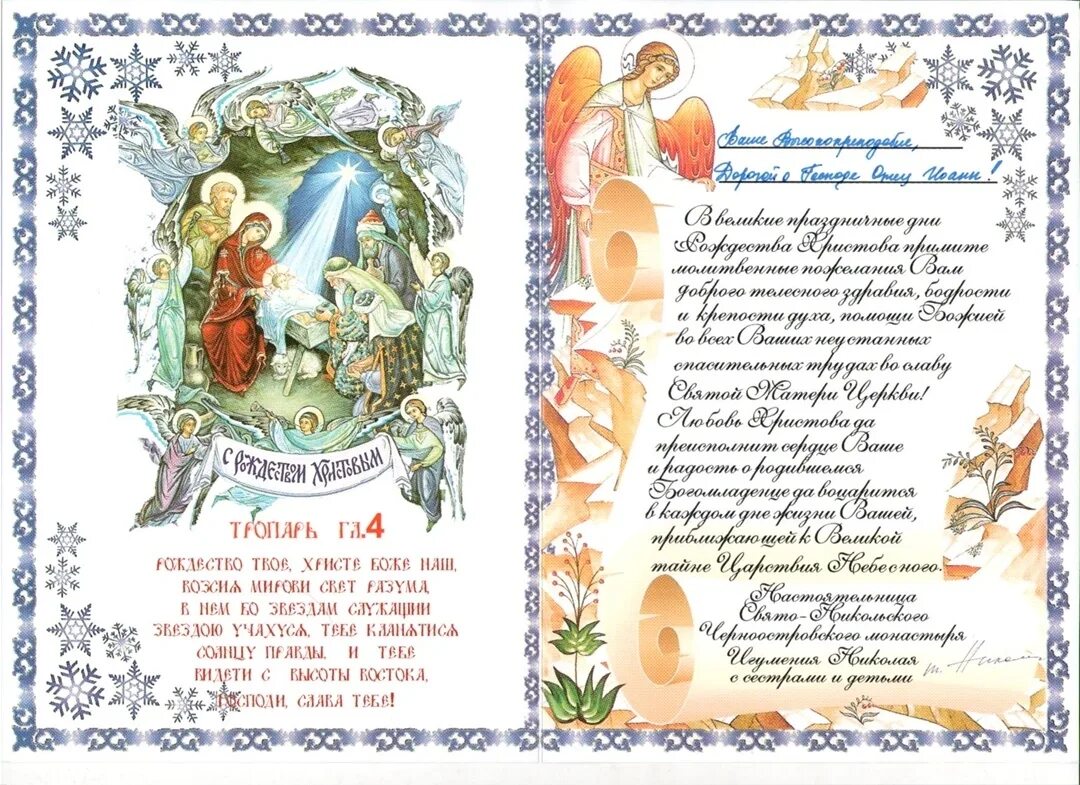 С РОЖДЕСТВОМ ХРИСТОВЫМ
ТРОПАРЬ ГЛ.4
РОЖДЕСТВО ТВОЕ, ХРИСТЕ БОЖЕ НАШ,
ВОЗСИЯ МИРОВИ СВЕТ РАЗУМА,
В НЕМ БО ЗВЕЗДАМ СЛУЖАЩИИ
ЗВЕЗДОЮ УЧАХУСЯ, ТЕБЕ КЛАНЯТИСЯ
СОЛНЦУ ПРАВДЫ, И ТЕБЕ
ВИДЕТИ С ВЫСОТЫ ВОСТОКА,
ГОСПОДИ, СЛАВА ТЕБЕ!
Ваше Высокопреподобие,
Дорогой о Господе Отец Иоанн!
В великие праздничные дни
Рождества Христова примите
молитвенные пожелания Вам
доброго телесного здравия, бодрости
и крепости духа, помощи Божией
во всех Ваших неустанных
спасительных трудах во славу
Святой Матери Церкви!
Любовь Христова да
преисполнит сердце Ваше
и радость о родившемся
Богомладенце да воцарится
в каждом дне жизни Вашей,
приближающей к Великой
тайне Царствия Небесного.
Настоятельница
Свято-Никольского
Черноостровского монастыря
Игумения Николая
с сестрами и детьми